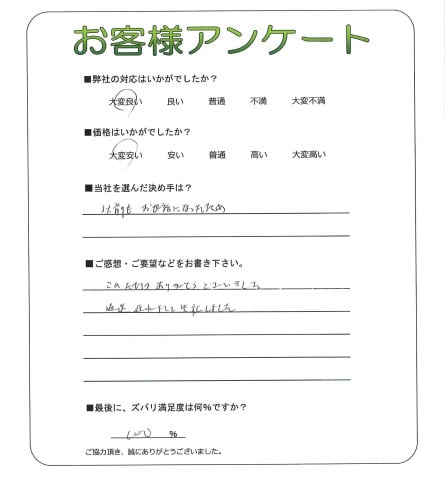 お客様アンケート
■弊社の対応はいかがでしたか?
大変良い 良い 普通 不満 大変不満
■価格はいかがでしたか?
大変安い 安い 普通 高い 大変高い
■当社を選んだ決め手は?
以前も お世話になったため
■ご感想・ご要望などをお書き下さい。
このたびは ありがとうございました
失礼しました
■最後に、ズバリ満足度は何%ですか?
100 %
ご協力頂き、誠にありがとうございました。